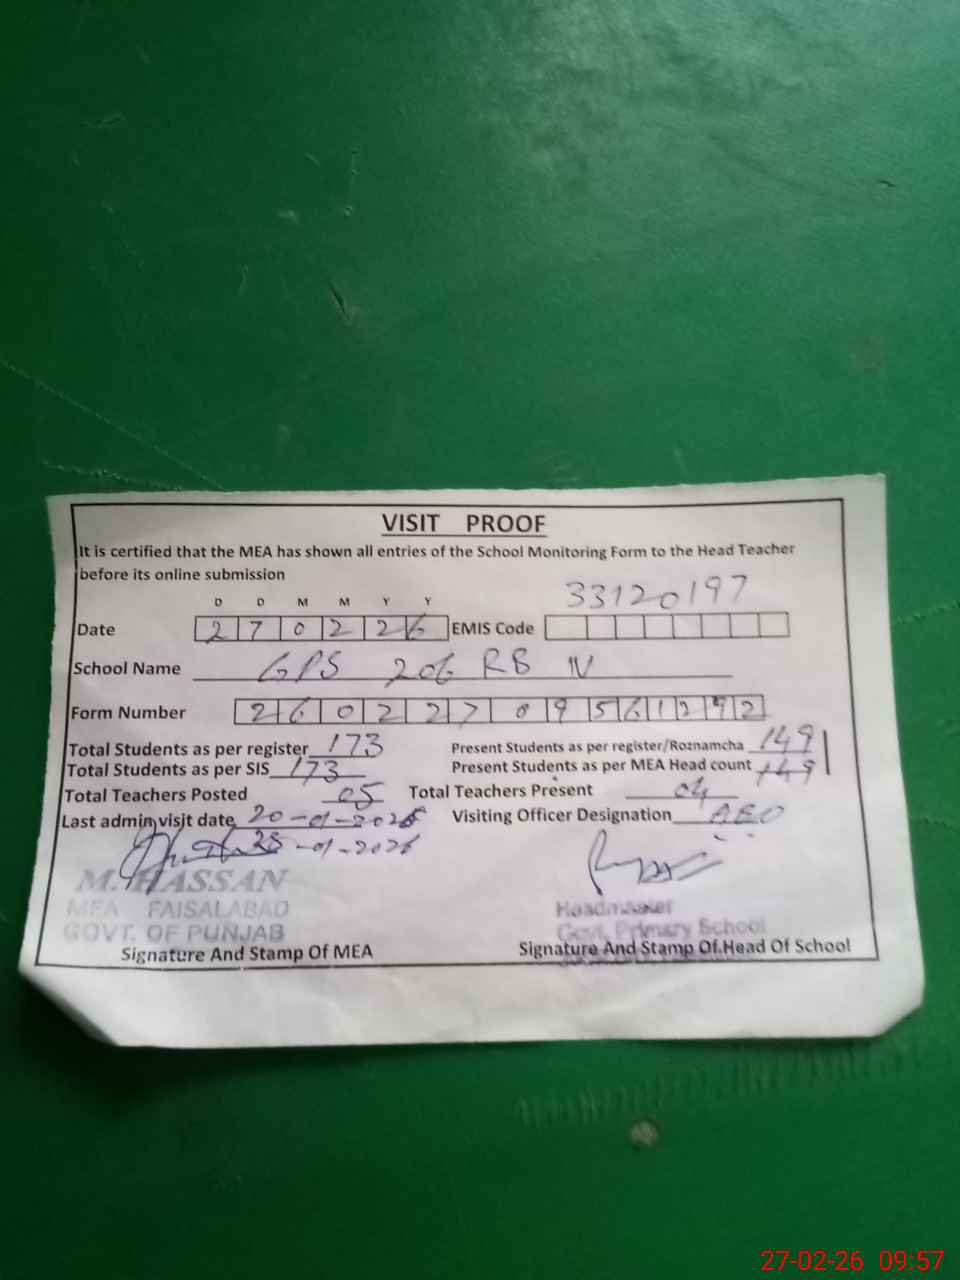 VISIT PROOF
It is certified that the MEA has shown all entries of the School Monitoring Form to the Head Teacher
before its online submission
33120197
D D M M Y Y
Date 2 7 0 2 2 6 EMIS Code
School Name GPS 206 RB IV
Form Number 2 6 0 2 2 7 0 9 5 6 1 2 9 2
Total Students as per register 173 Present Students as per register/Roznamcha 149
Total Students as per SIS 173 Present Students as per MEA Head count 149
Total Teachers Posted 05 Total Teachers Present 04
Last admin visit date 20-01-2026 Visiting Officer Designation AEO
28-01-2026
M. HASSAN
MEA FAISALABAD Headmaster
GOVT. OF PUNJAB Govt. Primary School
Signature And Stamp Of MEA Signature And Stamp Of Head Of School
27-02-26 09:57